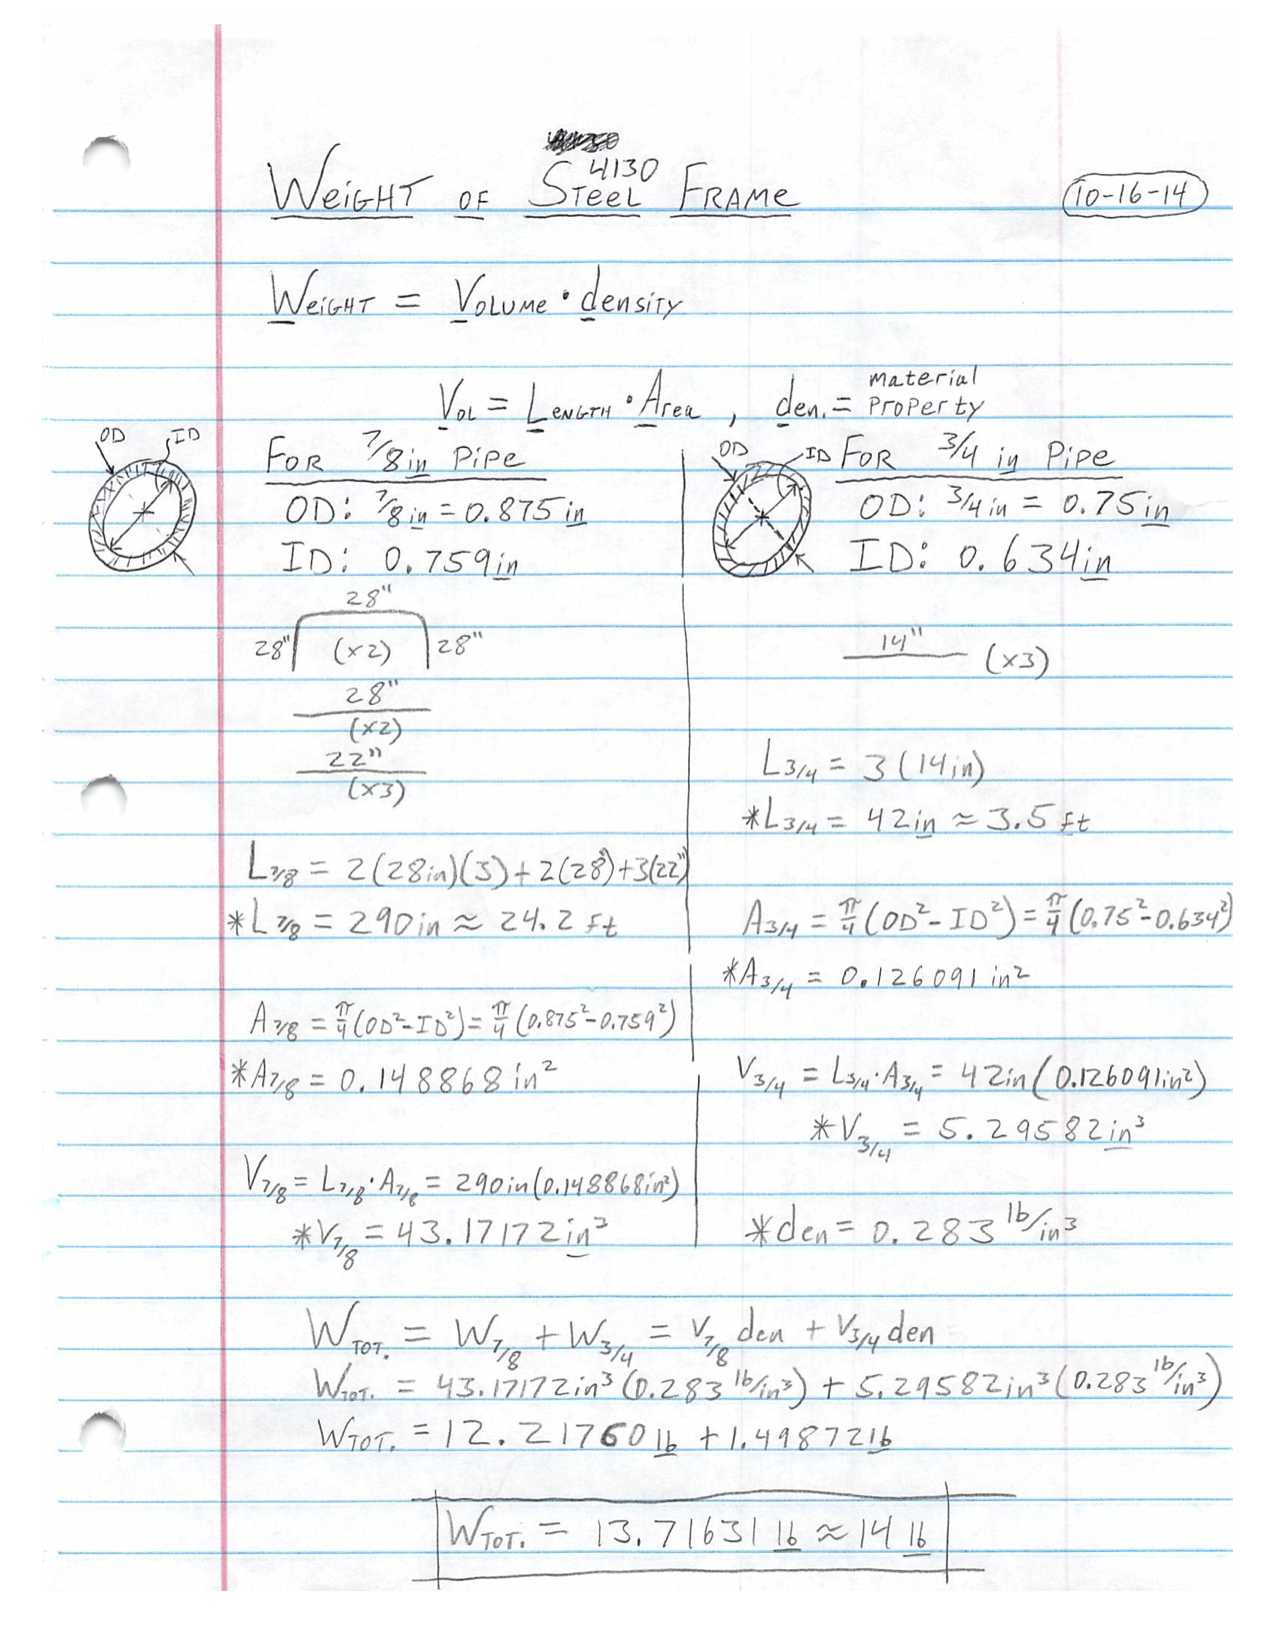 Weight of 4130 Steel Frame
10-16-14
Weight = Volume · density
Vol = Length · Area , den. = material property
OD ID
For 7/8 in Pipe
OD: 7/8 in = 0.875 in
ID: 0.759 in
28"
28" (x2) 28"
28"
(x2)
22"
(x3)
L7/8 = 2(28in)(3)+2(28")+3(22")
*L7/8 = 290in ≈ 24.2 ft
A7/8 = π/4(OD²-ID²) = π/4(0.875²-0.759²)
*A7/8 = 0.148868 in²
V7/8 = L7/8·A7/8 = 290in(0.148868in²)
*V7/8 = 43.17172 in³
OD ID
For 3/4 in Pipe
OD: 3/4 in = 0.75 in
ID: 0.634 in
14" (x3)
L3/4 = 3(14in)
*L3/4 = 42in ≈ 3.5 ft
A3/4 = π/4(OD²-ID²) = π/4(0.75²-0.634²)
*A3/4 = 0.126091 in²
V3/4 = L3/4·A3/4 = 42in(0.126091in²)
*V3/4 = 5.29582 in³
*den = 0.283 lb/in³
WTOT. = W7/8 + W3/4 = V7/8 den + V3/4 den
WTOT. = 43.17172in³(0.283 lb/in³) + 5.29582in³(0.283 lb/in³)
WTOT. = 12.21760 lb + 1.49872 lb
WTOT. = 13.71631 lb ≈ 14 lb